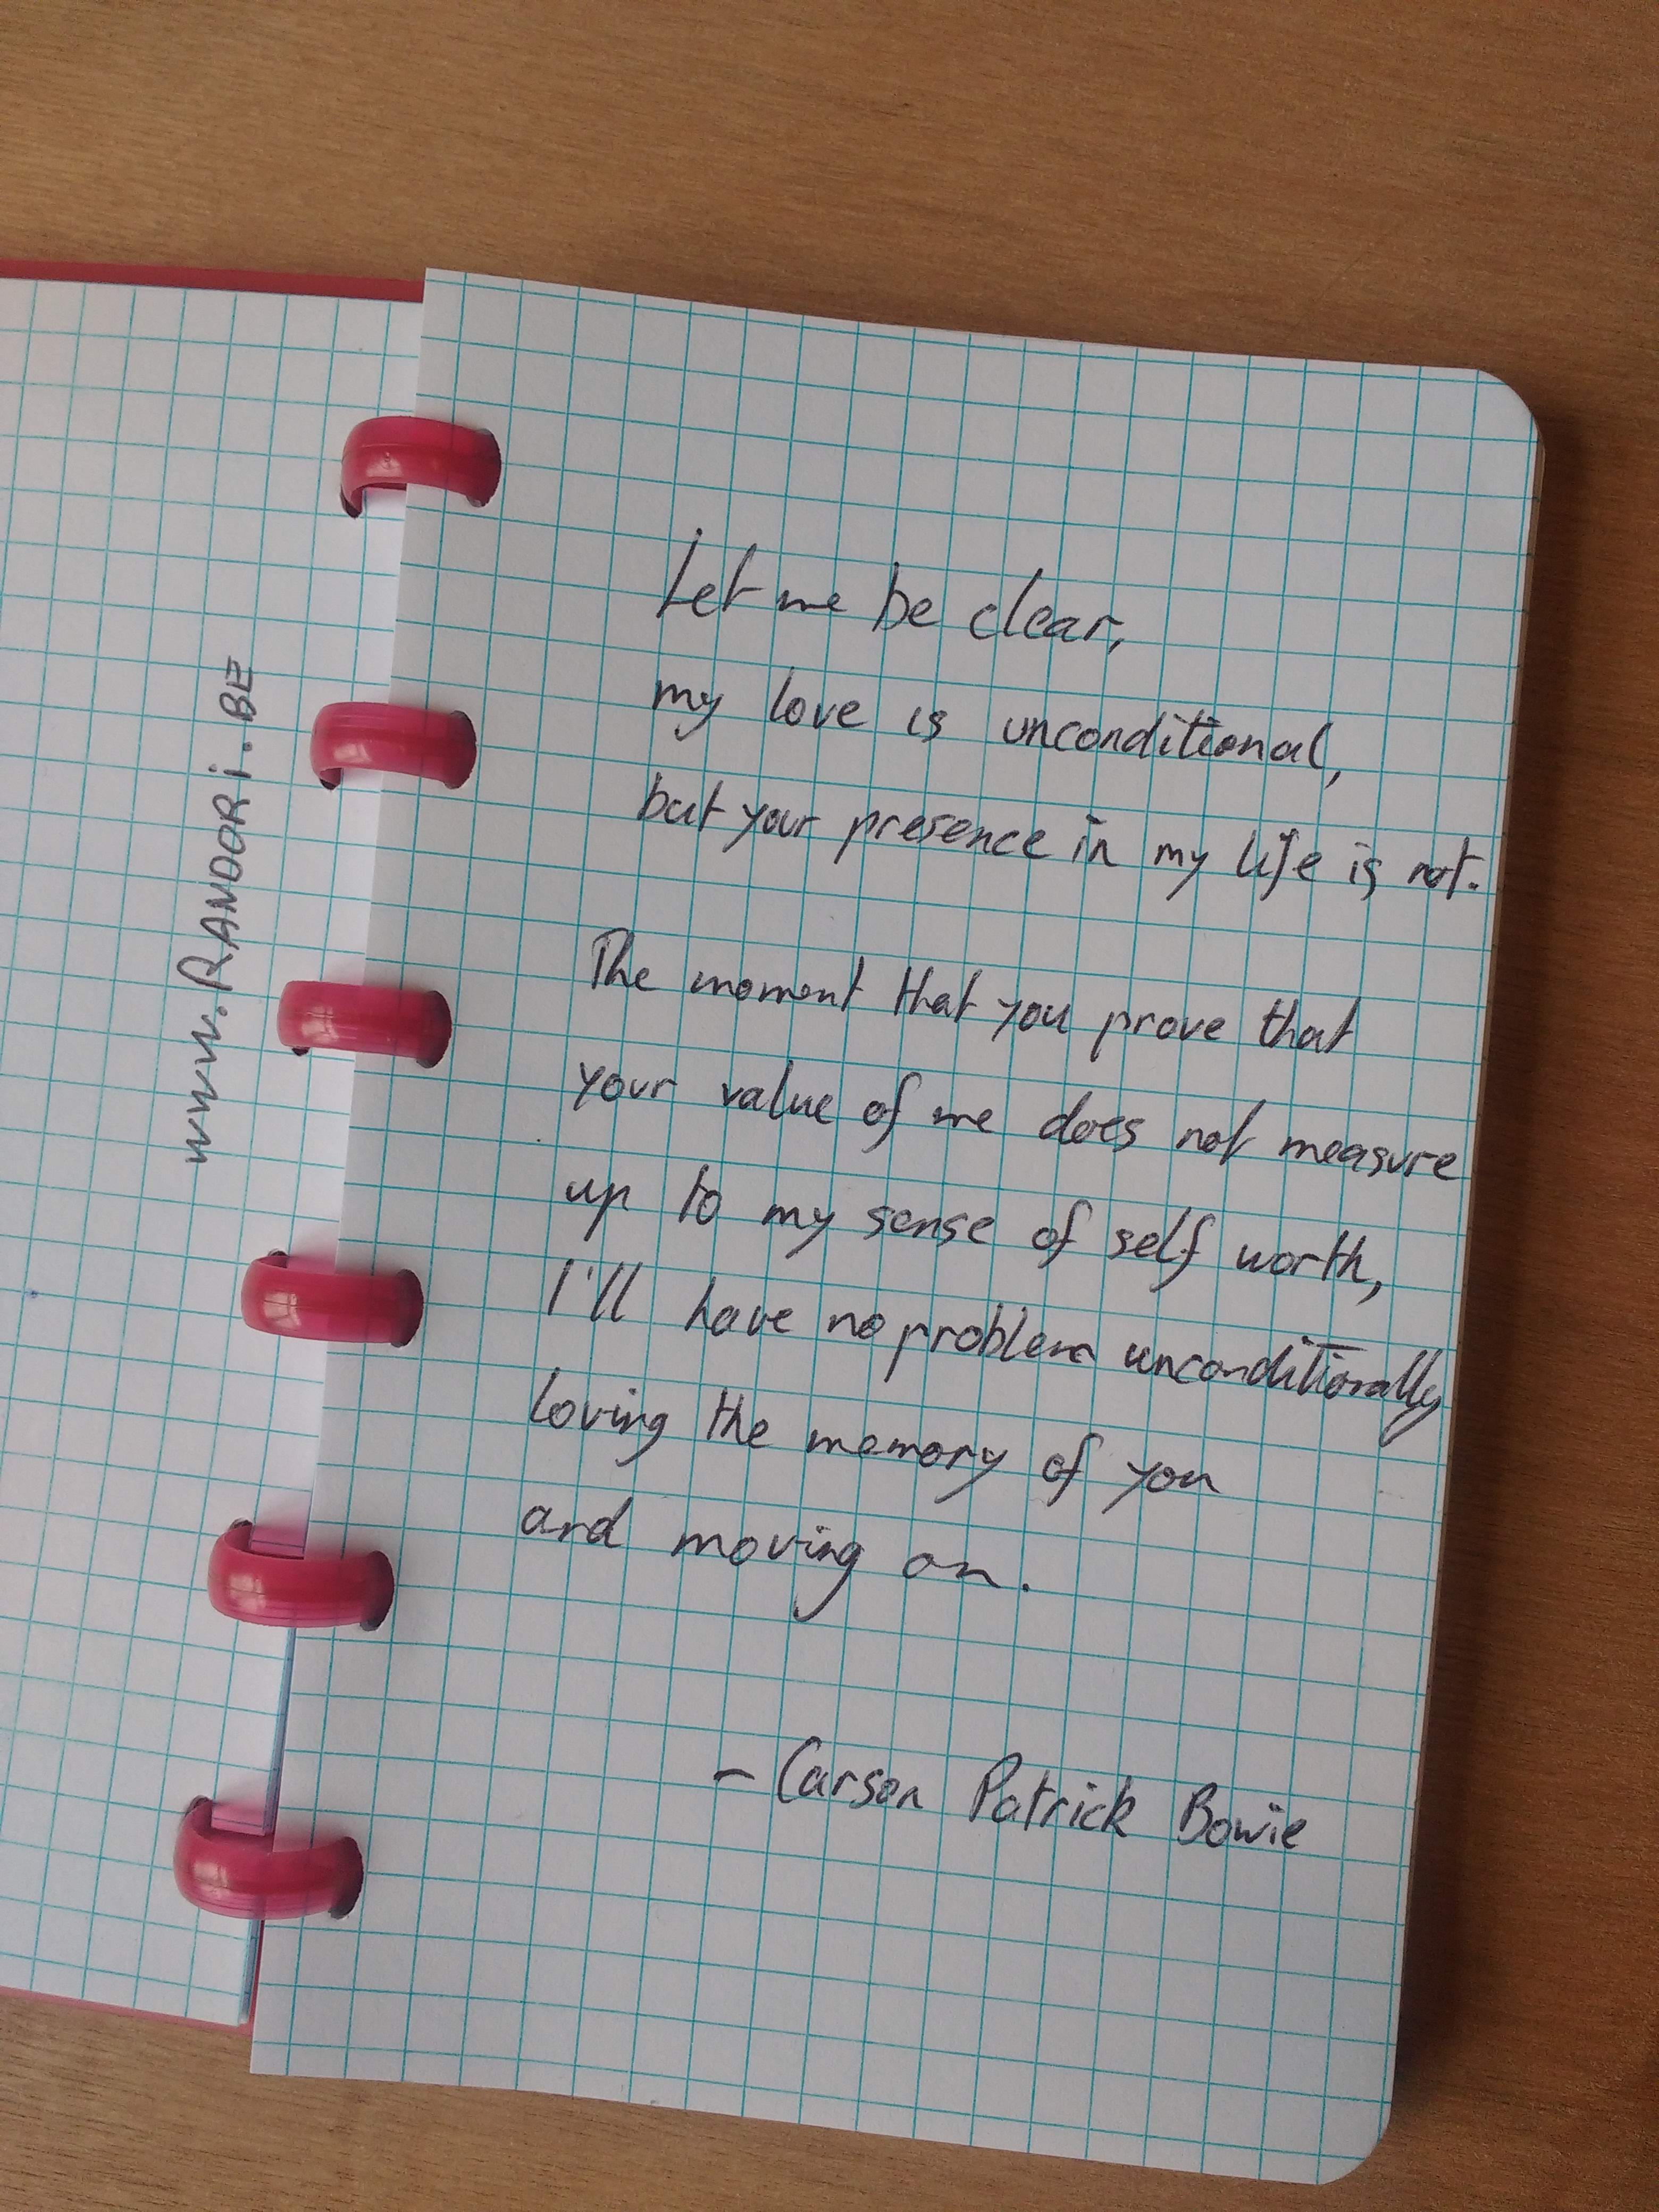 www.RANDORi.BE
Let me be clear,
my love is unconditional,
but your presence in my life is not.
The moment that you prove that
your value of me does not measure
up to my sense of self worth,
I'll have no problem unconditionally
loving the memory of you
and moving on.
- Carson Patrick Bowie